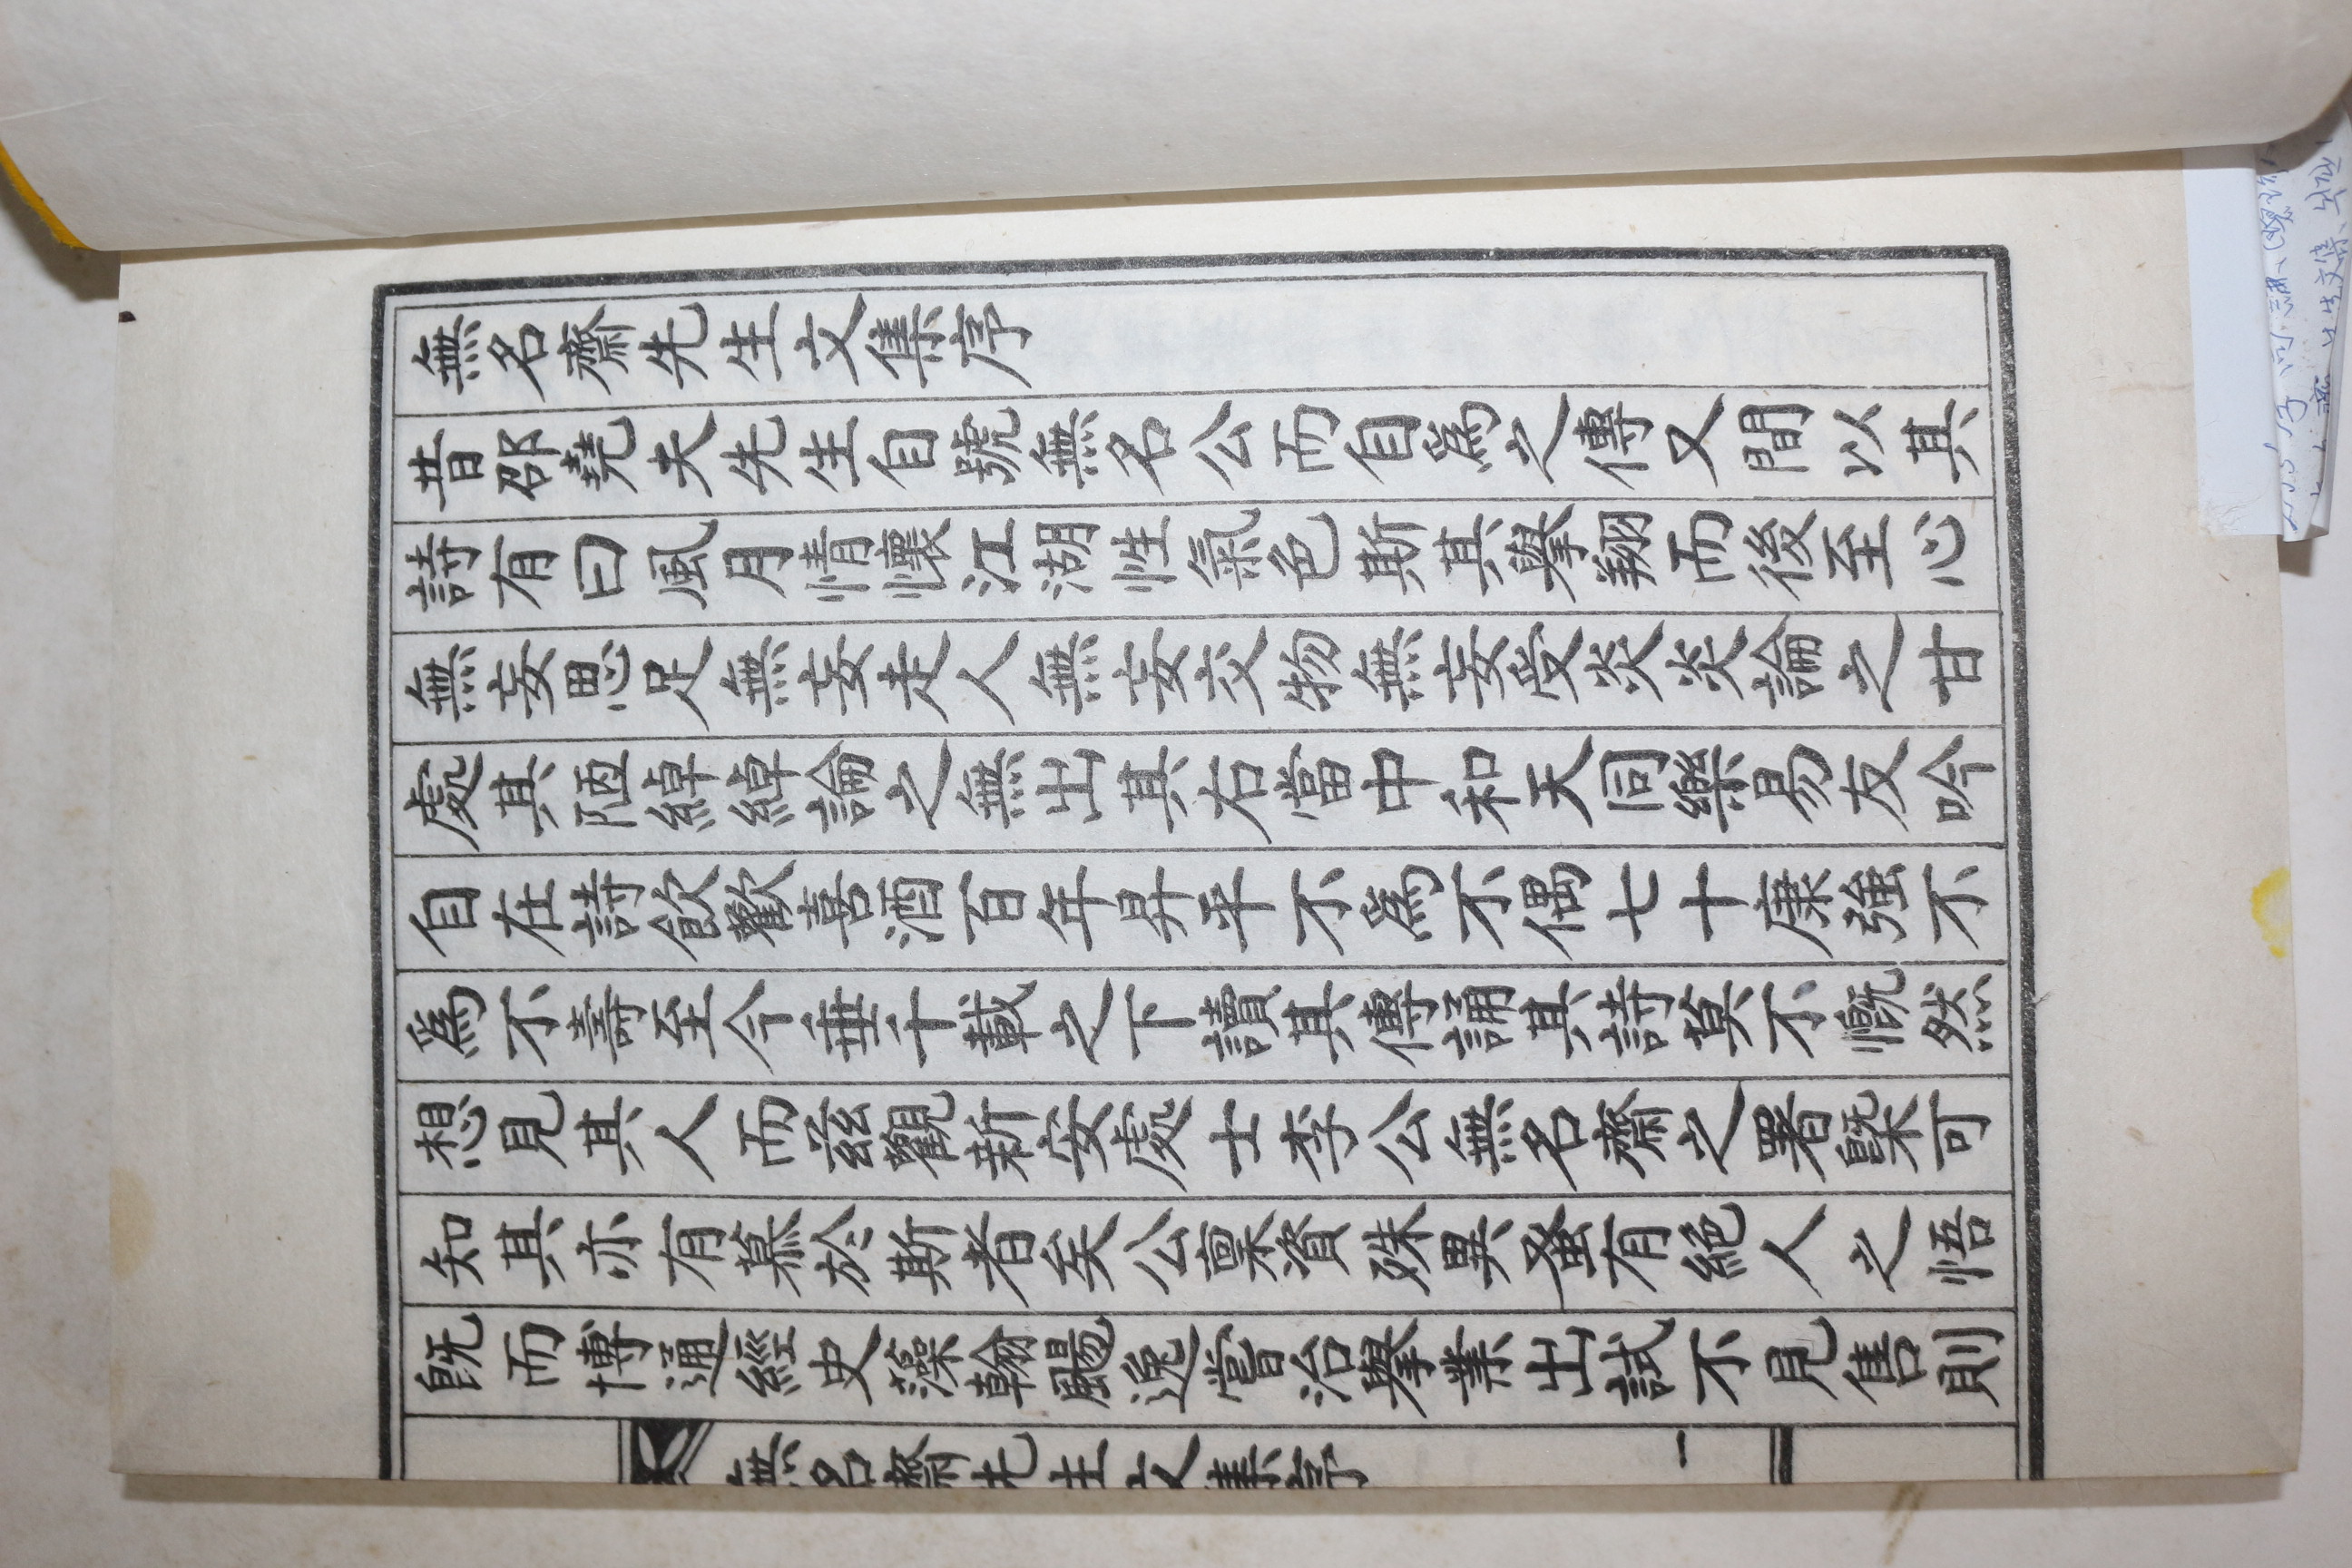 無名齋先生文集序
昔邵堯夫先生自號無名公而自爲之傳又間以其
詩有曰風月情懷江湖性氣色斯其擧翔而後至心
無妄思足無妄走人無妄交物無妄受炎炎論之甘
處其陋綽綽論之無出其右當中和天同樂易友吟
自在詩飮歡喜酒百年昇平不爲不偶七十康強不
爲不壽至今垂千載之下讀其傳誦其詩莫不慨然
想見其人而茲觀新安處士李公無名齋之署槩可
知其亦有慕於斯者矣公稟資殊異蚤有絶人之悟
旣而博通經史藻翰颺逸嘗治擧業出試不見售則
無名齋先生文集序
一